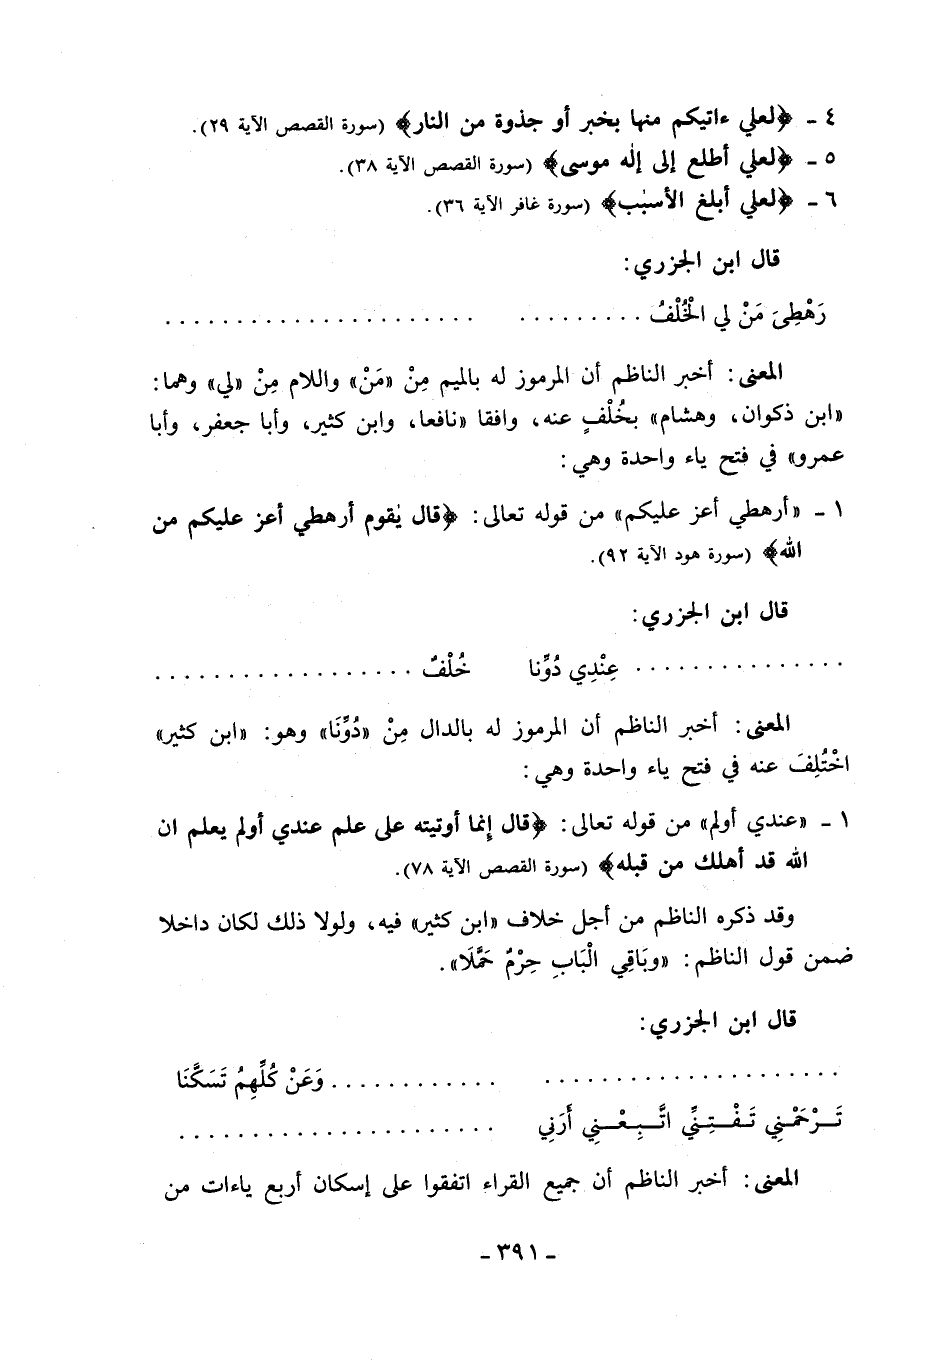 ٤ - ﴿لعلي ءاتيكم منها بخبر أو جذوة من النار﴾ (سورة القصص الآية ٢٩).
٥ - ﴿لعلي أطلع إلى إلٰه موسى﴾ (سورة القصص الآية ٣٨).
٦ - ﴿لعلي أبلغ الأسبٰب﴾ (سورة غافر الآية ٣٦).
قال ابن الجزري:
رَهْطِىَ مَنْ لي الْخُلْفُ . . . . . . . . .   . . . . . . . . . . . . . . . . . . . . . .
المعنى: أخبر الناظم أن المرموز له بالميم مِنْ «مَنْ» واللام مِنْ «لي» وهما:
«ابن ذكوان، وهشام» بخُلْفٍ عنه، وافقا «نافعا، وابن كثير، وأبا جعفر، وأبا
عمرو» في فتح ياء واحدة وهي:
١ - «أرهطي أعز عليكم» من قوله تعالى: ﴿قال يٰقوم أرهطي أعز عليكم من
الله﴾ (سورة هود الآية ٩٢).
قال ابن الجزري:
. . . . . . . . . . . . . . . عِنْدِي دُوِّنا   خُلْفٌ . . . . . . . . . . . . . . . . . .
المعنى: أخبر الناظم أن المرموز له بالدال مِنْ «دُوِّنَا» وهو: «ابن كثير»
اخْتُلِفَ عنه في فتح ياء واحدة وهي:
١ - «عندي أولم» من قوله تعالى: ﴿قال إنما أوتيته على علم عندي أولم يعلم ان
الله قد أهلك من قبله﴾ (سورة القصص الآية ٧٨).
وقد ذكره الناظم من أجل خلاف «ابن كثير» فيه، ولولا ذلك لكان داخلا
ضمن قول الناظم: «وبَاقِي الْبَابِ حِرْمٌ حَمَّلَا».
قال ابن الجزري:
. . . . . . . . . . . . . . . . . . . . .   . . . . . . . . . . . . وَعَنْ كُلِّهِمُ تَسَكَّنَا
تَـرْحَمْـنِي تَـفْـتِـنِّي اتَّـبِـعْـنِي أَرَنِي   . . . . . . . . . . . . . . . . . . . . . .
المعنى: أخبر الناظم أن جميع القراء اتفقوا على إسكان أربع ياءات من
- ٣٩١ -